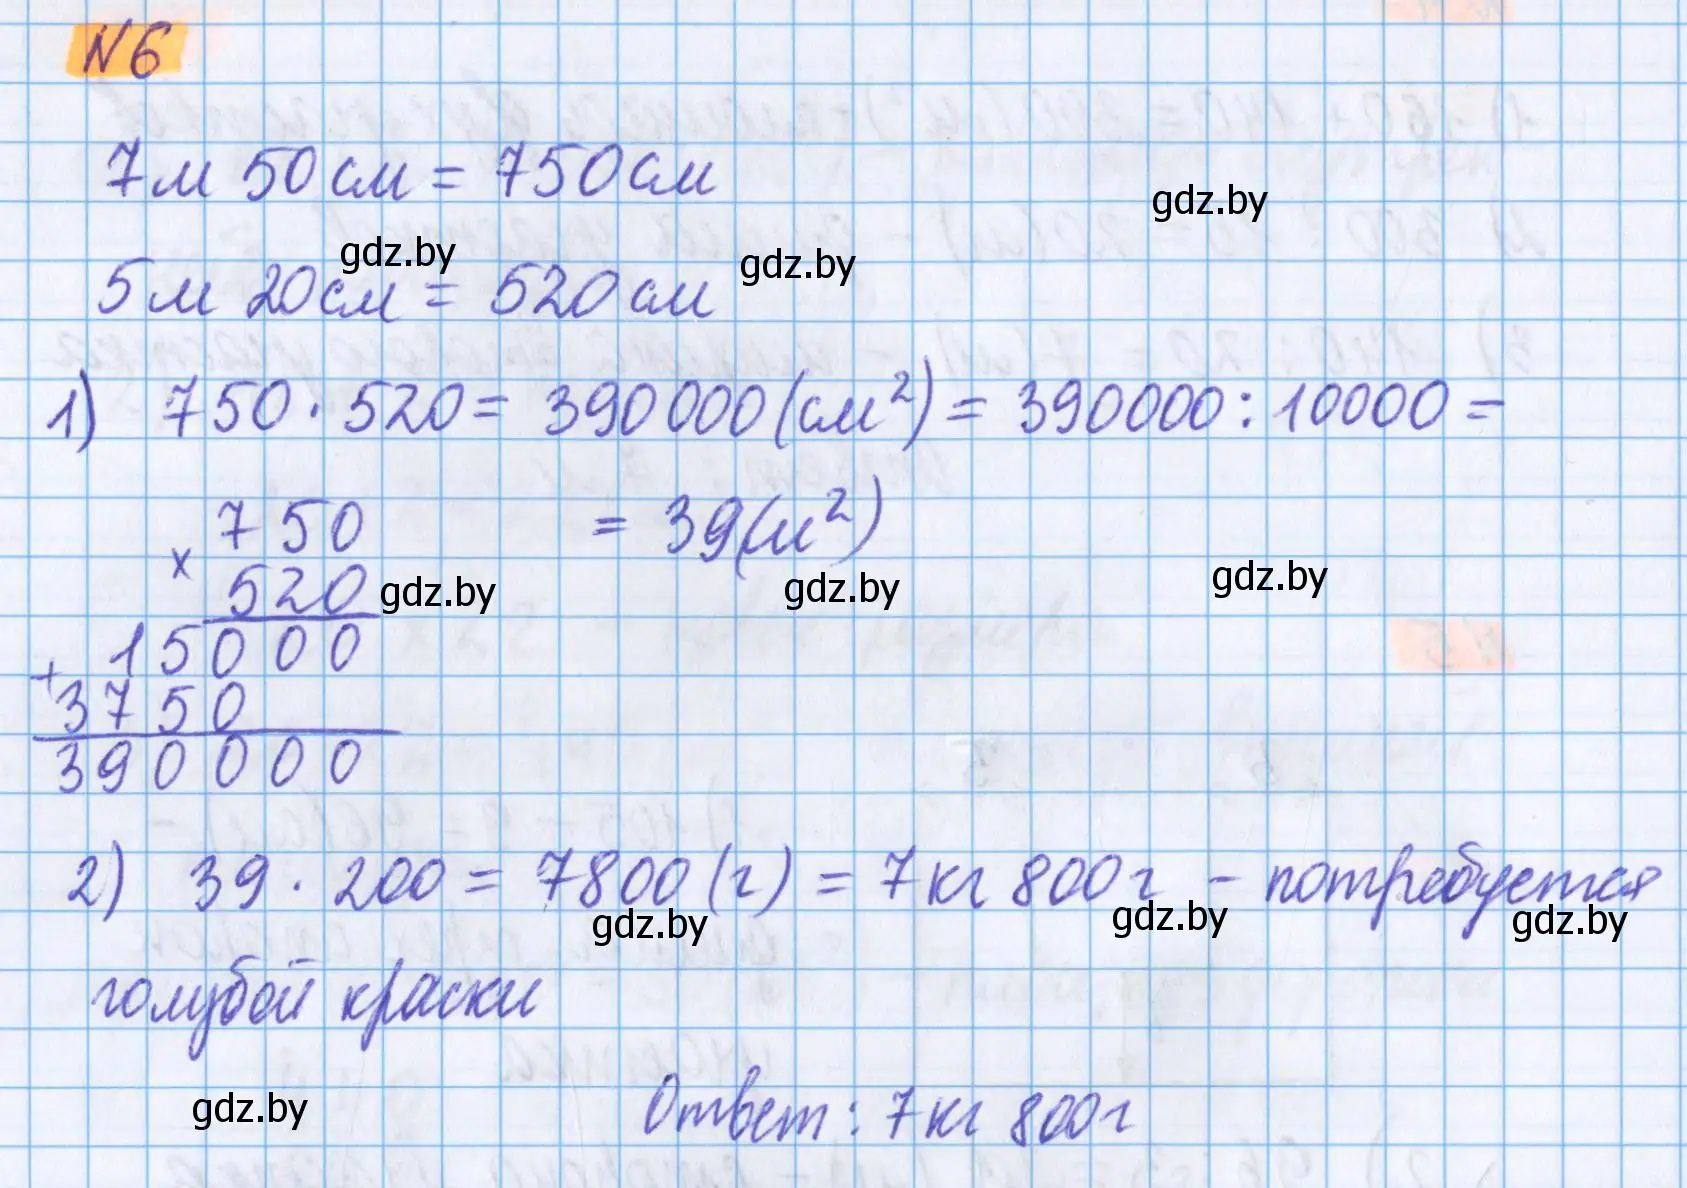 №6
7м 50см = 750см
5м 20см = 520см
1) 750 · 520 = 390000 (см²) = 390000 : 10000 =
= 39 (м²)
× 750
520
+ 15000
3750
390000
2) 39 · 200 = 7800 (г) = 7кг 800г - потребуется
голубой краски
Ответ: 7кг 800г
gdz.by
gdz.by
gdz.by
gdz.by
gdz.by
gdz.by
gdz.by
gdz.by
gdz.by
gdz.by